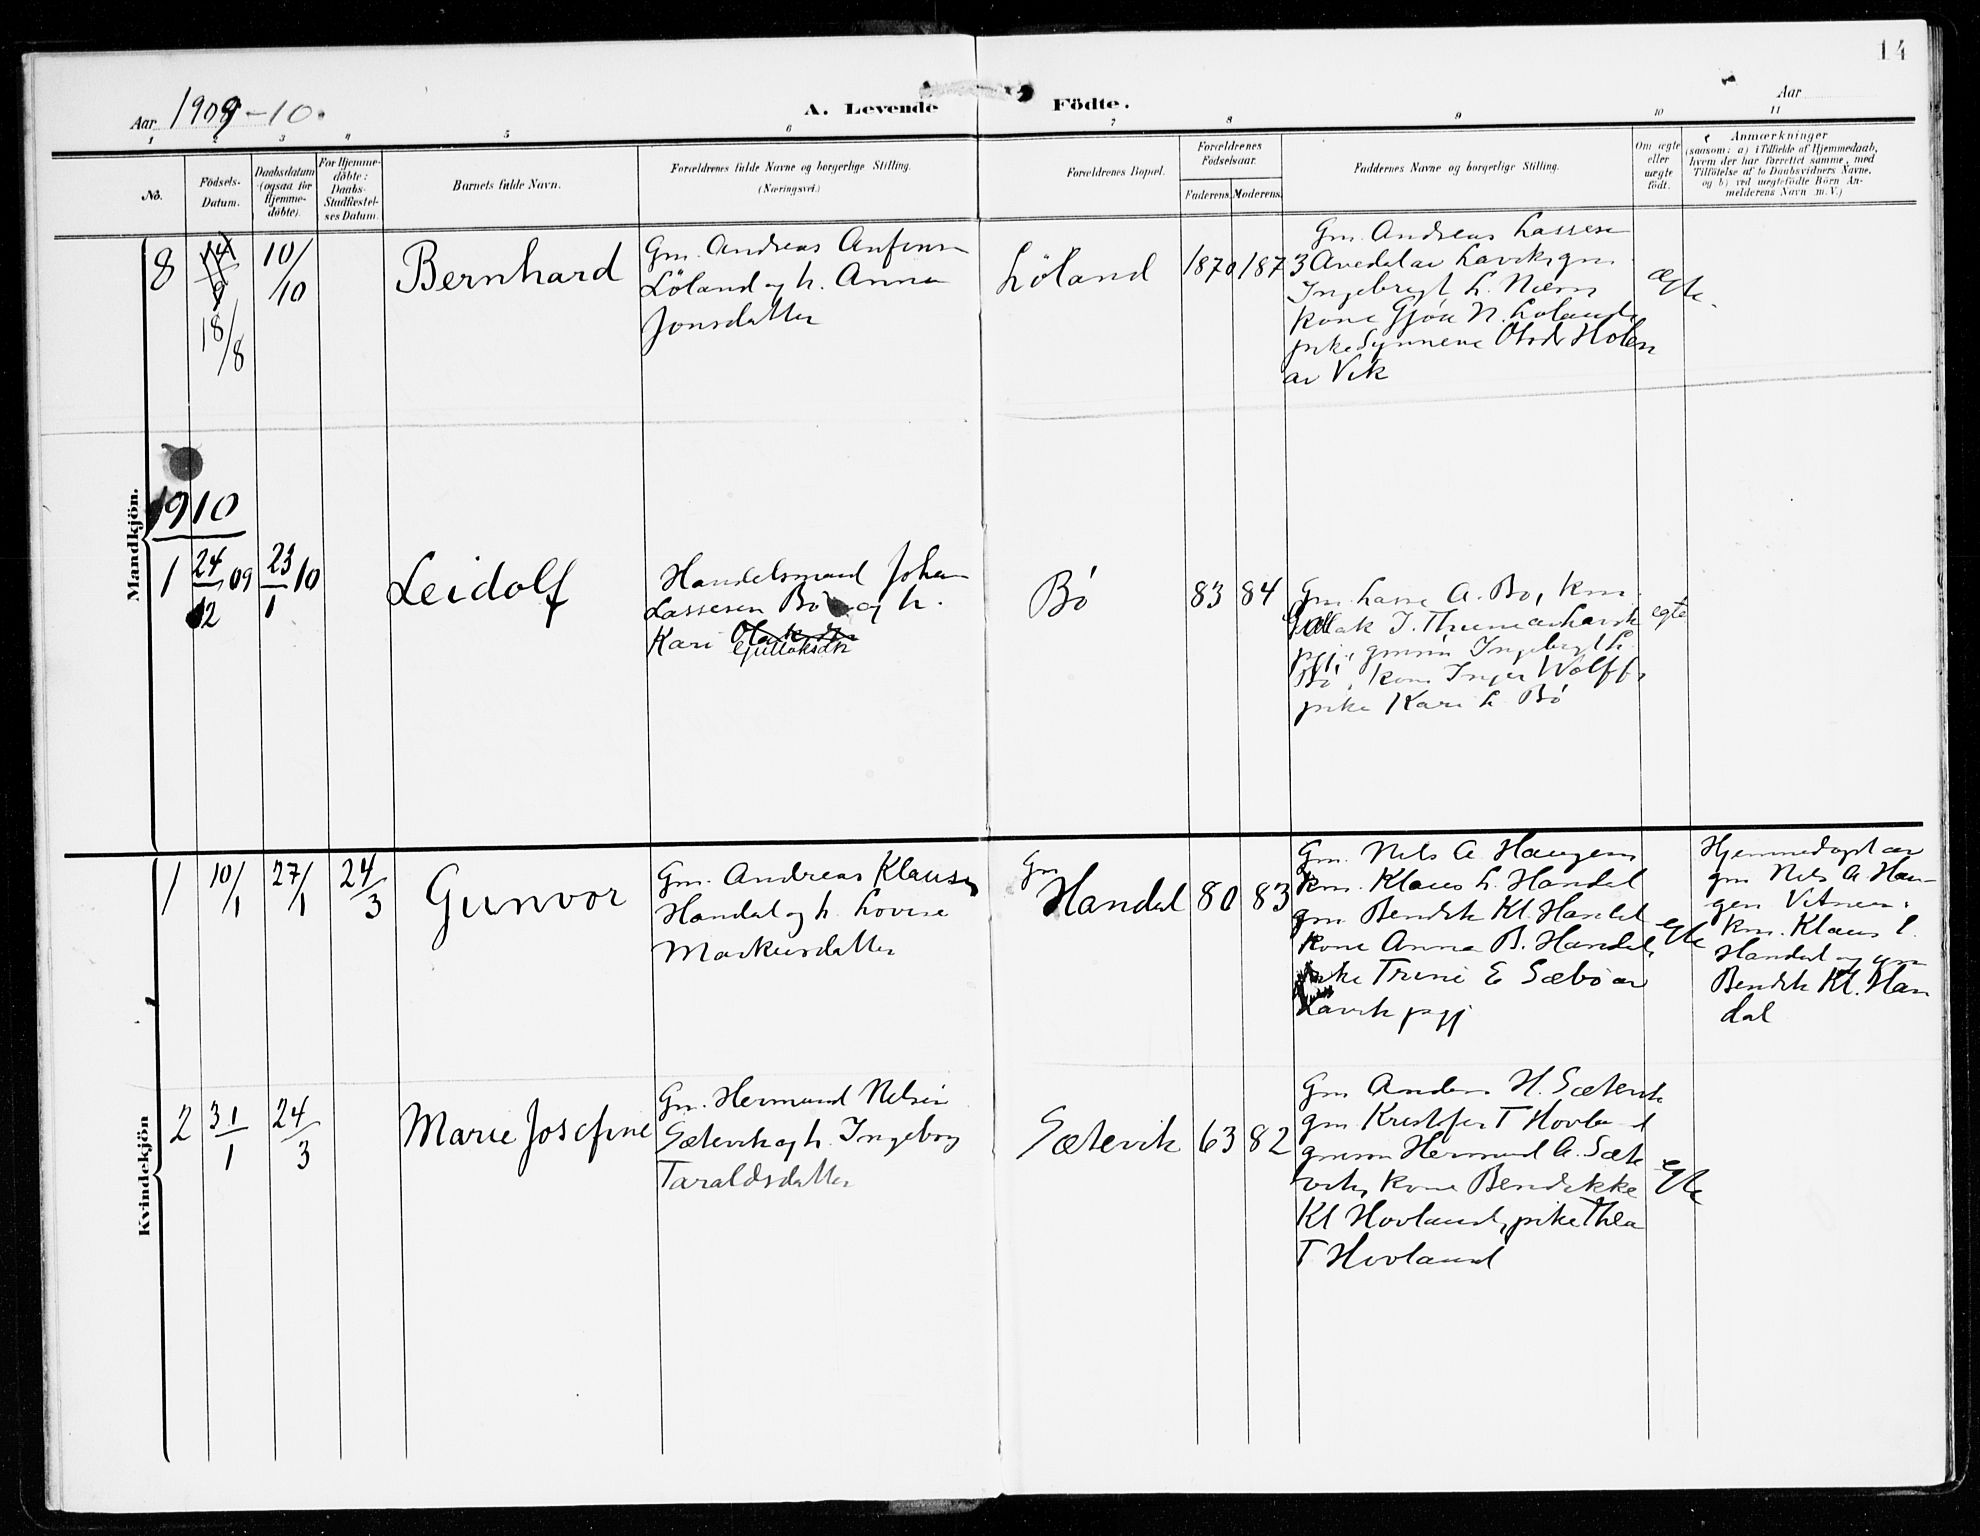 14
Aar 1909-10.
A. Levende Födte.
Aar
1 2 3 4 5 6 7 8 9 10 11
No.
Födsels-
Datum.
Daabsdatum
(ogsaa for
Hjemme-
döbte).
For Hjemme-
döbte:
Daabs-
Stadfæstel-
ses Datum.
Barnets fulde Navn.
Forældrenes fulde Navne og borgerlige Stilling.
(Næringsvei.)
Forældrenes Bopæl.
Forældrenes
Födselsaar.
Faderens. Moderens.
Faddernes Navne og borgerlige Stilling.
Om ægte
eller
uægte
födt.
Anmærkninger
(saasom: a) i Tilfælde af Hjemmedaab,
hvem der har forrettet samme, med
Tilföielse af to Daabsvidners Navne,
og b) ved uægtefödte Börn An-
melderens Navn m. V.)
Mandkjön.
8
14/9
18/8
10/10
Bernhard
Gm. Andreas Anfinsen
Löland og h. Anna
Jonsdatter
Löland
1870
1873
Gm. Andreas Lassesen
Avedal av Lavik, gm.
Ingebrigt L.
kone Gjöa N. Löland,
pike Synneve Olsdr Holen
av Vik
ægte.
1910
1
24/12 09
23/1 10
Leidolf
Handelsmand Johan
Lassesen Bö og h.
Kari
Gullaksdtr
Bö
83
84
Gm. Lasse A. Bö, km.
Gullak J. av Lavik
pgj., gmsøn Ingebrigt L.
Bö, kone Inger Wolff,
pike Kari L. Bö
egte
Kvindekjön
1
10/1
27/1
24/3
Gunvor
Gm. Andreas Klausen
Handal og h. Lovise
Markusdatter
Gm
Handal
80
83
Gm. Nils A. Haugen,
km. Klaus L. Handal
gm Bendik Kl. Handal
kone Anna B. Handal,
pike Trine E Sæbö av
Lavik pgj
egte
Hjemmedöpt av
gm Nils A. Hau-
gen Vitner:
km. Klaus L.
Handal og gm
Bendik Kl. Han
dal
2
31/1
24/3
Marie Josefine
Gm. Hermund Nilsen
Sætevik og h. Ingeborg
Taraldsdatter
Sætevik
63
82
Gm Anders H. Sætevik
gm Kristofer T Hovland
gmsøn Hermund A. Sæte
vik, kone Bendikke
Kl Hovland, pike Thea
T Hovland
egte